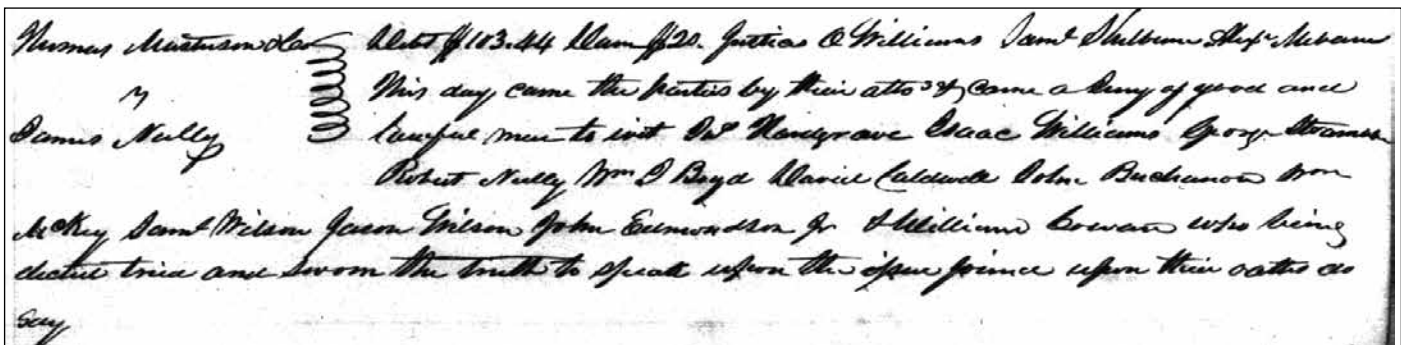 Thomas Masterson & Co Debt $103.44 Dam $20. Justices O Williams Saml Shelburne Alexr Mebane
v This day came the parties by their attos & came a Jury of good and
James Neelly lawful men to wit Hardgrave Isaac Williams George
Robert Neelly Wm P Boyd David Caldwell John Buchanan Wm
McKey Saml Wilson Jason Wilson John Edmondson Jr & William Cowan who being
elected tried and sworn the truth to speak upon the issue joined upon their oaths do
say